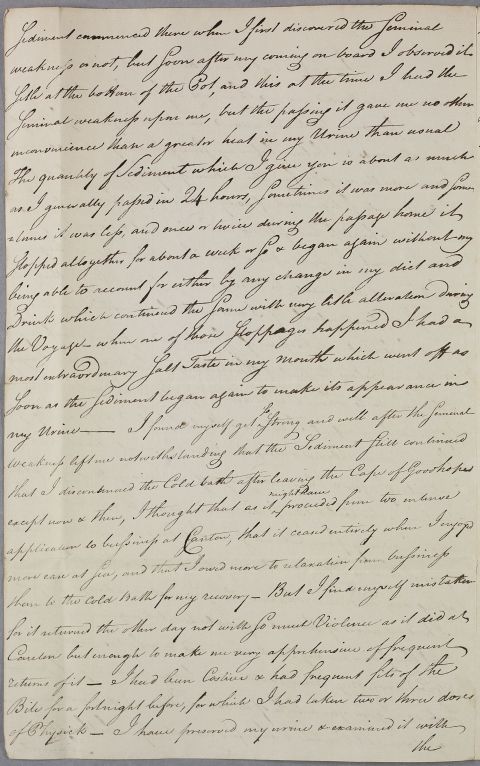 Sediment commenced there when I first discovered the Seminal
weakness or not, but Soon after my coming on board I observed it
settle at the bottom of the Pot, and this at the time I had the
Seminal weakness upon me, but the passing it gave me no other
inconvenience than a greater heat in my Urine than usual
The quantity of Sediment which I give you is about as much
as I generally passed in 24 hours, sometimes it was more and Some
=times it was less, and once or twice during the passage home it
stopped altogether for about a week or So & began again without my
being able to account for either by any change in my diet and
Drink which continued the Same with very little alteration during
the Voyage - when one of those Stoppages happened I had a
most extraordinary Salt Taste in my mouth which went off as
Soon as the Sediment began again to make its appearance in
my Urine — I found myself get So Strong and well after the Seminal
weakness left me notwithstanding that the Sediment Still continued
that I discontinued the Cold bath after leaving the Cape of Goodhope
except now & then, I thought that as it might have proceeded from two intense
application to bussiness at Canton, that it ceased entirely when I enjoyd
more ease at Sea, and that I owed more to relaxation from bussiness
than to the Cold Bath for my recovery - But I find myself mistaken
for it returned the other day not with So much Violence as it did at
Canton but enough to make me very apprehensive of frequent
returns of it - I had been Costive & had frequent fits of the
Bile for a fortnight before, for which I had taken two or three doses
of Physick - I have preserved my urine & examined it with
the